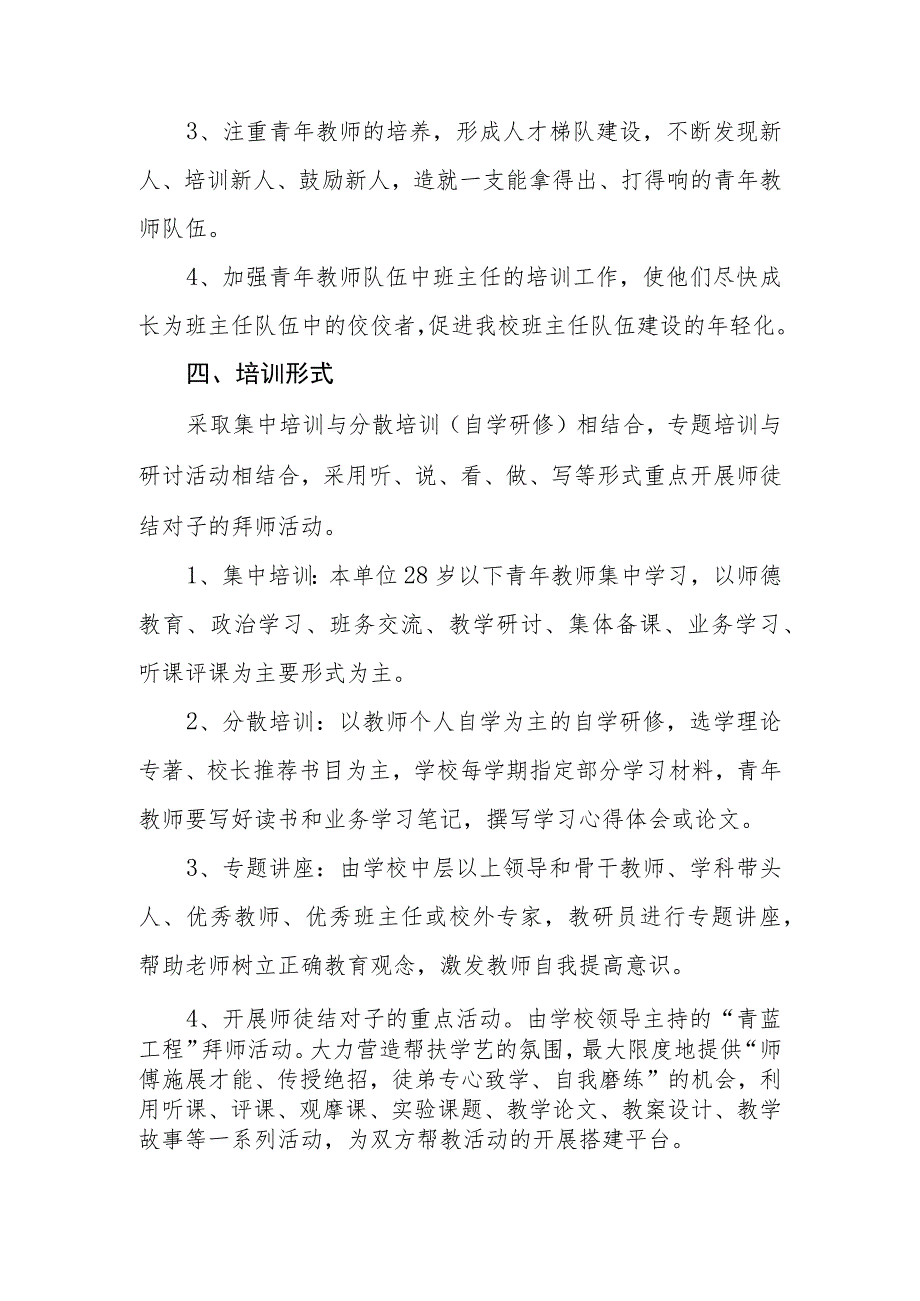 3、注重青年教师的培养，形成人才梯队建设，不断发现新
人、培训新人、鼓励新人，造就一支能拿得出、打得响的青年教
师队伍。
4、加强青年教师队伍中班主任的培训工作，使他们尽快成
长为班主任队伍中的佼佼者，促进我校班主任队伍建设的年轻化。
四、培训形式
采取集中培训与分散培训（自学研修）相结合，专题培训与
研讨活动相结合，采用听、说、看、做、写等形式重点开展师徒
结对子的拜师活动。
1、集中培训：本单位 28 岁以下青年教师集中学习，以师德
教育、政治学习、班务交流、教学研讨、集体备课、业务学习、
听课评课为主要形式为主。
2、分散培训：以教师个人自学为主的自学研修，选学理论
专著、校长推荐书目为主，学校每学期指定部分学习材料，青年
教师要写好读书和业务学习笔记，撰写学习心得体会或论文。
3、专题讲座：由学校中层以上领导和骨干教师、学科带头
人、优秀教师、优秀班主任或校外专家，教研员进行专题讲座，
帮助老师树立正确教育观念，激发教师自我提高意识。
4、开展师徒结对子的重点活动。由学校领导主持的“青蓝
工程”拜师活动。大力营造帮扶学艺的氛围，最大限度地提供“师
傅施展才能、传授绝招，徒弟专心致学、自我磨练”的机会，利
用听课、评课、观摩课、实验课题、教学论文、教案设计、教学
故事等一系列活动，为双方帮教活动的开展搭建平台。